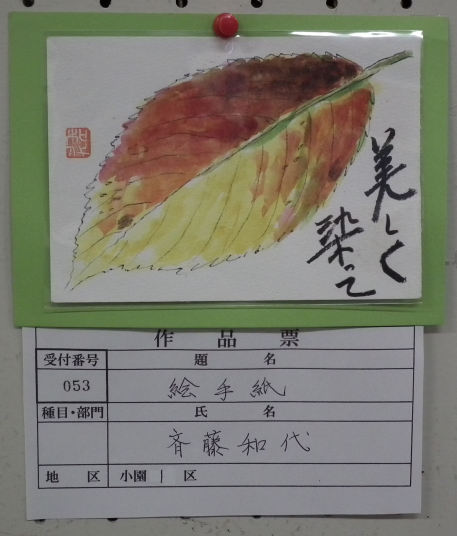 美しく
染て
作品票
受付番号 題名
053 絵手紙
種目・部門 氏名
斉藤和代
地区 小園 | 区